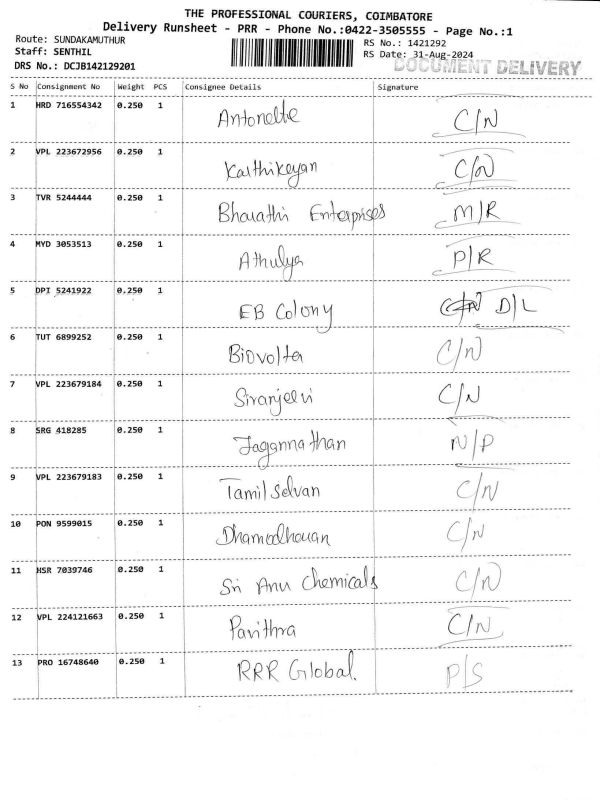 THE PROFESSIONAL COURIERS, COIMBATORE
Delivery Runsheet - PRR - Phone No.:0422-3505555 - Page No.:1
Route: SUNDAKAMUTHUR RS No.: 1421292
Staff: SENTHIL RS Date: 31-Aug-2024
DRS No.: DCJB142129201 DOCUMENT DELIVERY
S No Consignment No Weight PCS Consignee Details Signature
1 HRD 716554342 0.250 1 Antonette C/N
2 VPL 223672956 0.250 1 Karthikeyan C/N
3 TVR 5244444 0.250 1 Bharathi Enterprises M/R
4 MYD 3053513 0.250 1 Athulya P/R
5 DPI 5241922 0.250 1 EB Colony D/L
6 TUT 6899252 0.250 1 Biovolta C/N
7 VPL 223679184 0.250 1 Siranjeevi C/N
8 SRG 418285 0.250 1 Jagannathan N/P
9 VPL 223679183 0.250 1 Tamil selvan C/N
10 PON 9599015 0.250 1 C/N
11 HSR 7039746 0.250 1 Sri Anu Chemicals C/N
12 VPL 224121663 0.250 1 Pavithra C/N
13 PRO 16748640 0.250 1 RRR Global. P/S